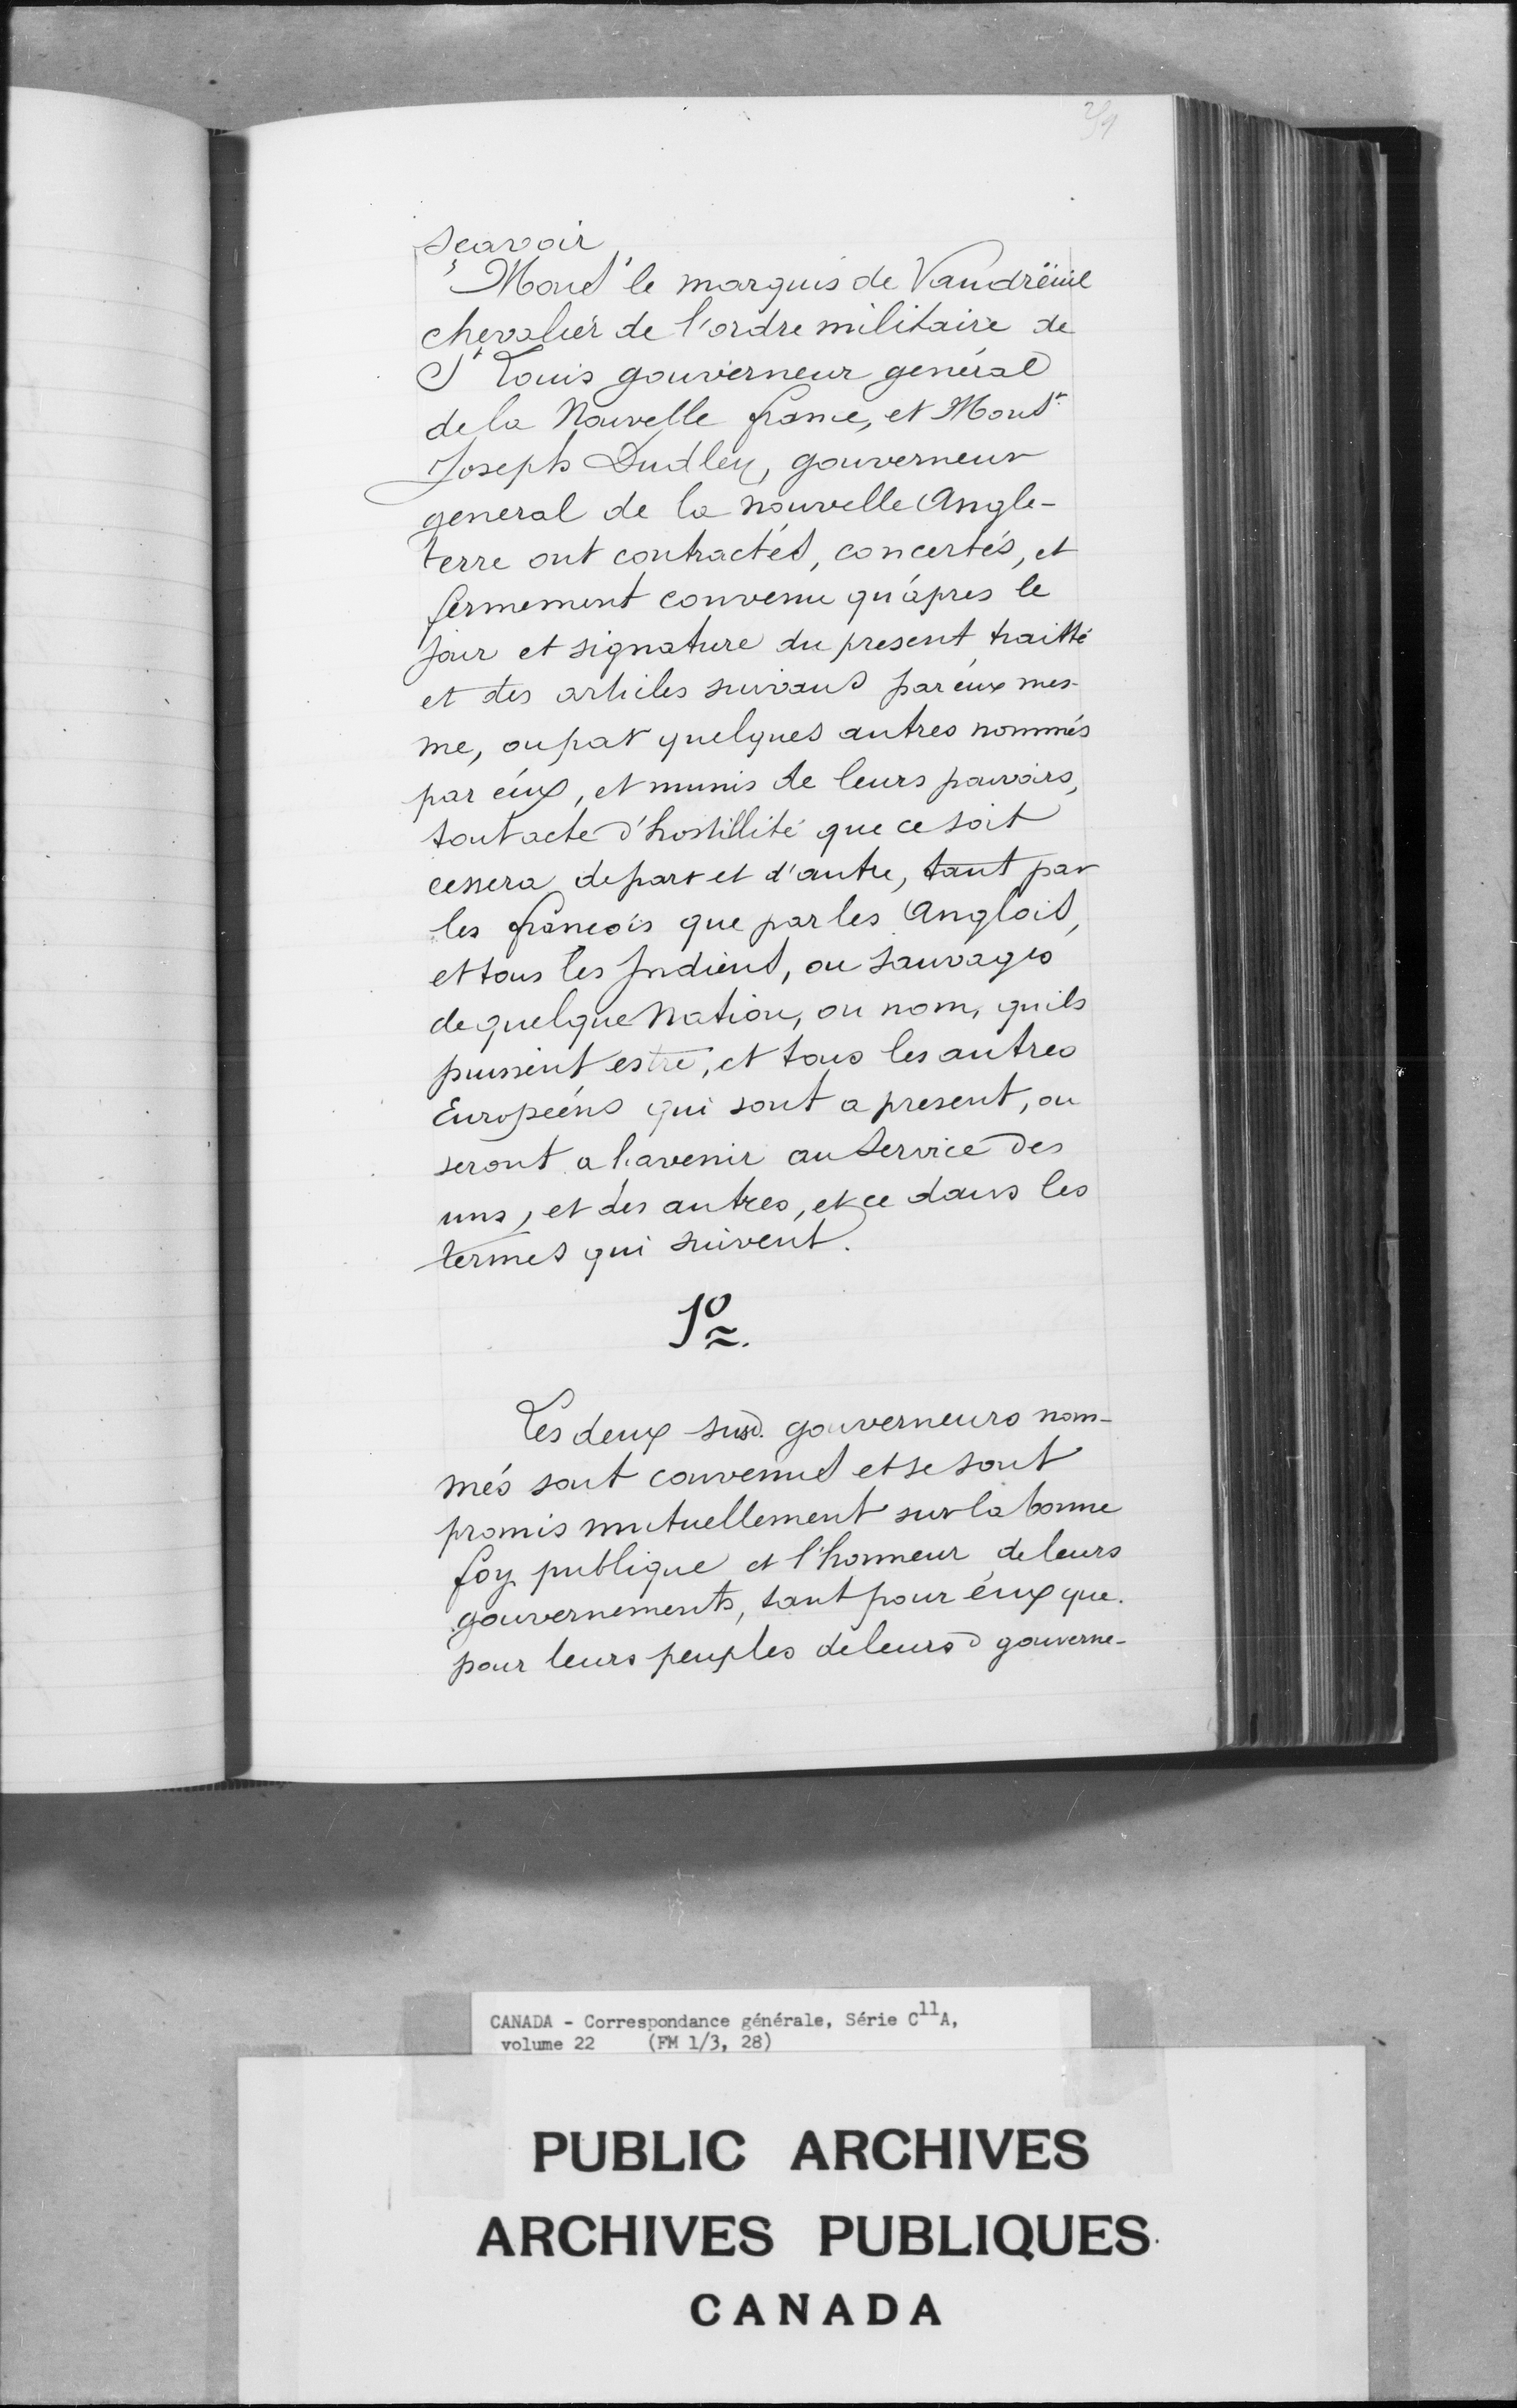 scavoir
Monsr le marquis de Vaudrëuil
chevalier de l'ordre militaire de
St Louis gouverneur general
de la Nouvelle france, et Monsr
Joseph Dudley, gouverneur
general de la nouvelle Angle-
terre ont contractés, concertés, et
fermement convenu qu'apres le
jour et signature du present traitté
et des articles suivans par eux mes-
me, ou par quelques autres nommés
par eux, et munis de leurs pouvoirs,
tout acte d'hostillité que ce soit
cessera de part et d'autre, tant par
les francois que par les Anglois,
et tous les Indiens, ou sauvages
de quelque Nation, ou nom, quils
puissent estre, et tous les autres
Européens qui sont a present, ou
seront a l'avenir au service des
uns, et des autres, et ce dans les
termes qui suivent.
1o.
Les deux susd. gouverneurs nom-
més sont convenus et se sont
promis mutuellement sur la bonne
foy publique et l'honneur de leurs
gouvernements, tant pour éux que
pour leurs peuples de leursd gouverne-
CANADA - Correspondance générale, Série C11A,
volume 22 (FM 1/3, 28)
PUBLIC ARCHIVES
ARCHIVES PUBLIQUES
CANADA